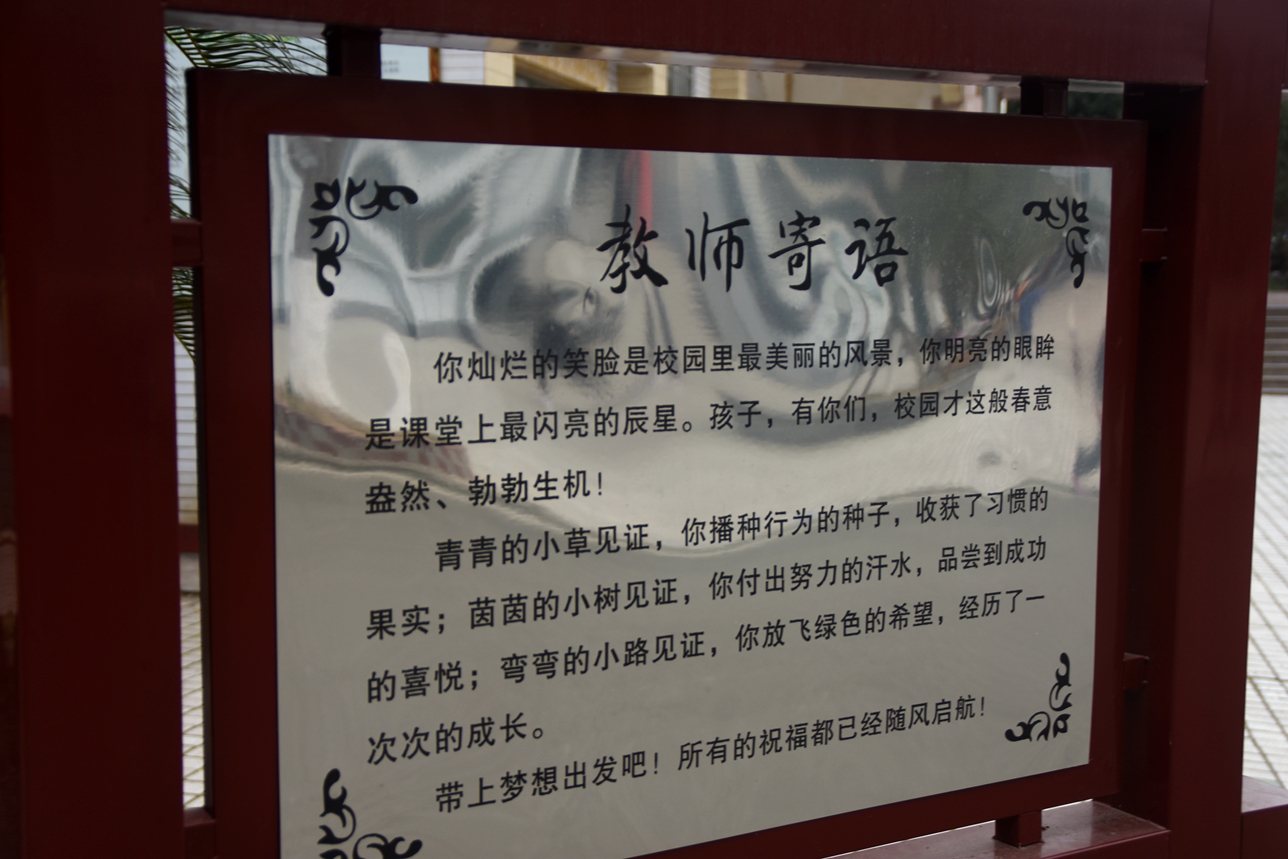 教师寄语
你灿烂的笑脸是校园里最美丽的风景，你明亮的眼眸
是课堂上最闪亮的辰星。孩子，有你们，校园才这般春意
盎然、勃勃生机！
青青的小草见证，你播种行为的种子，收获了习惯的
果实；茵茵的小树见证，你付出努力的汗水，品尝到成功
的喜悦；弯弯的小路见证，你放飞绿色的希望，经历了一
次次的成长。
带上梦想出发吧！所有的祝福都已经随风启航！